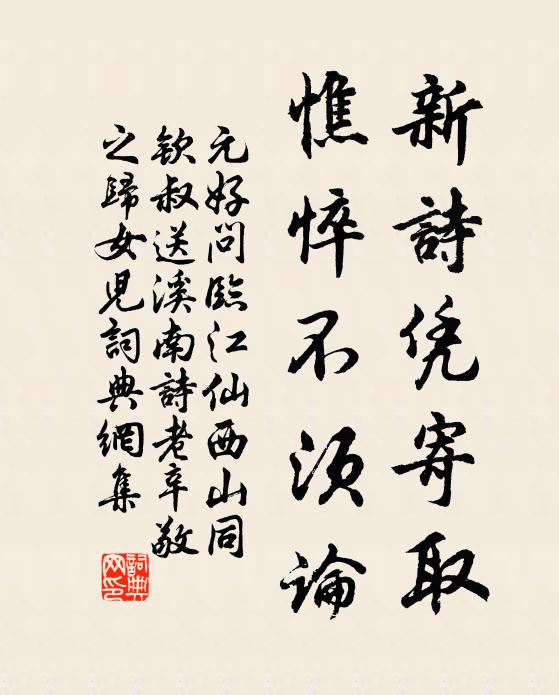 新詩凭寄取
憔悴不須論
元好問臨江仙西山同
欽叔送溪南詩老辛敬
之歸女兒詞典網集
詞典
网印